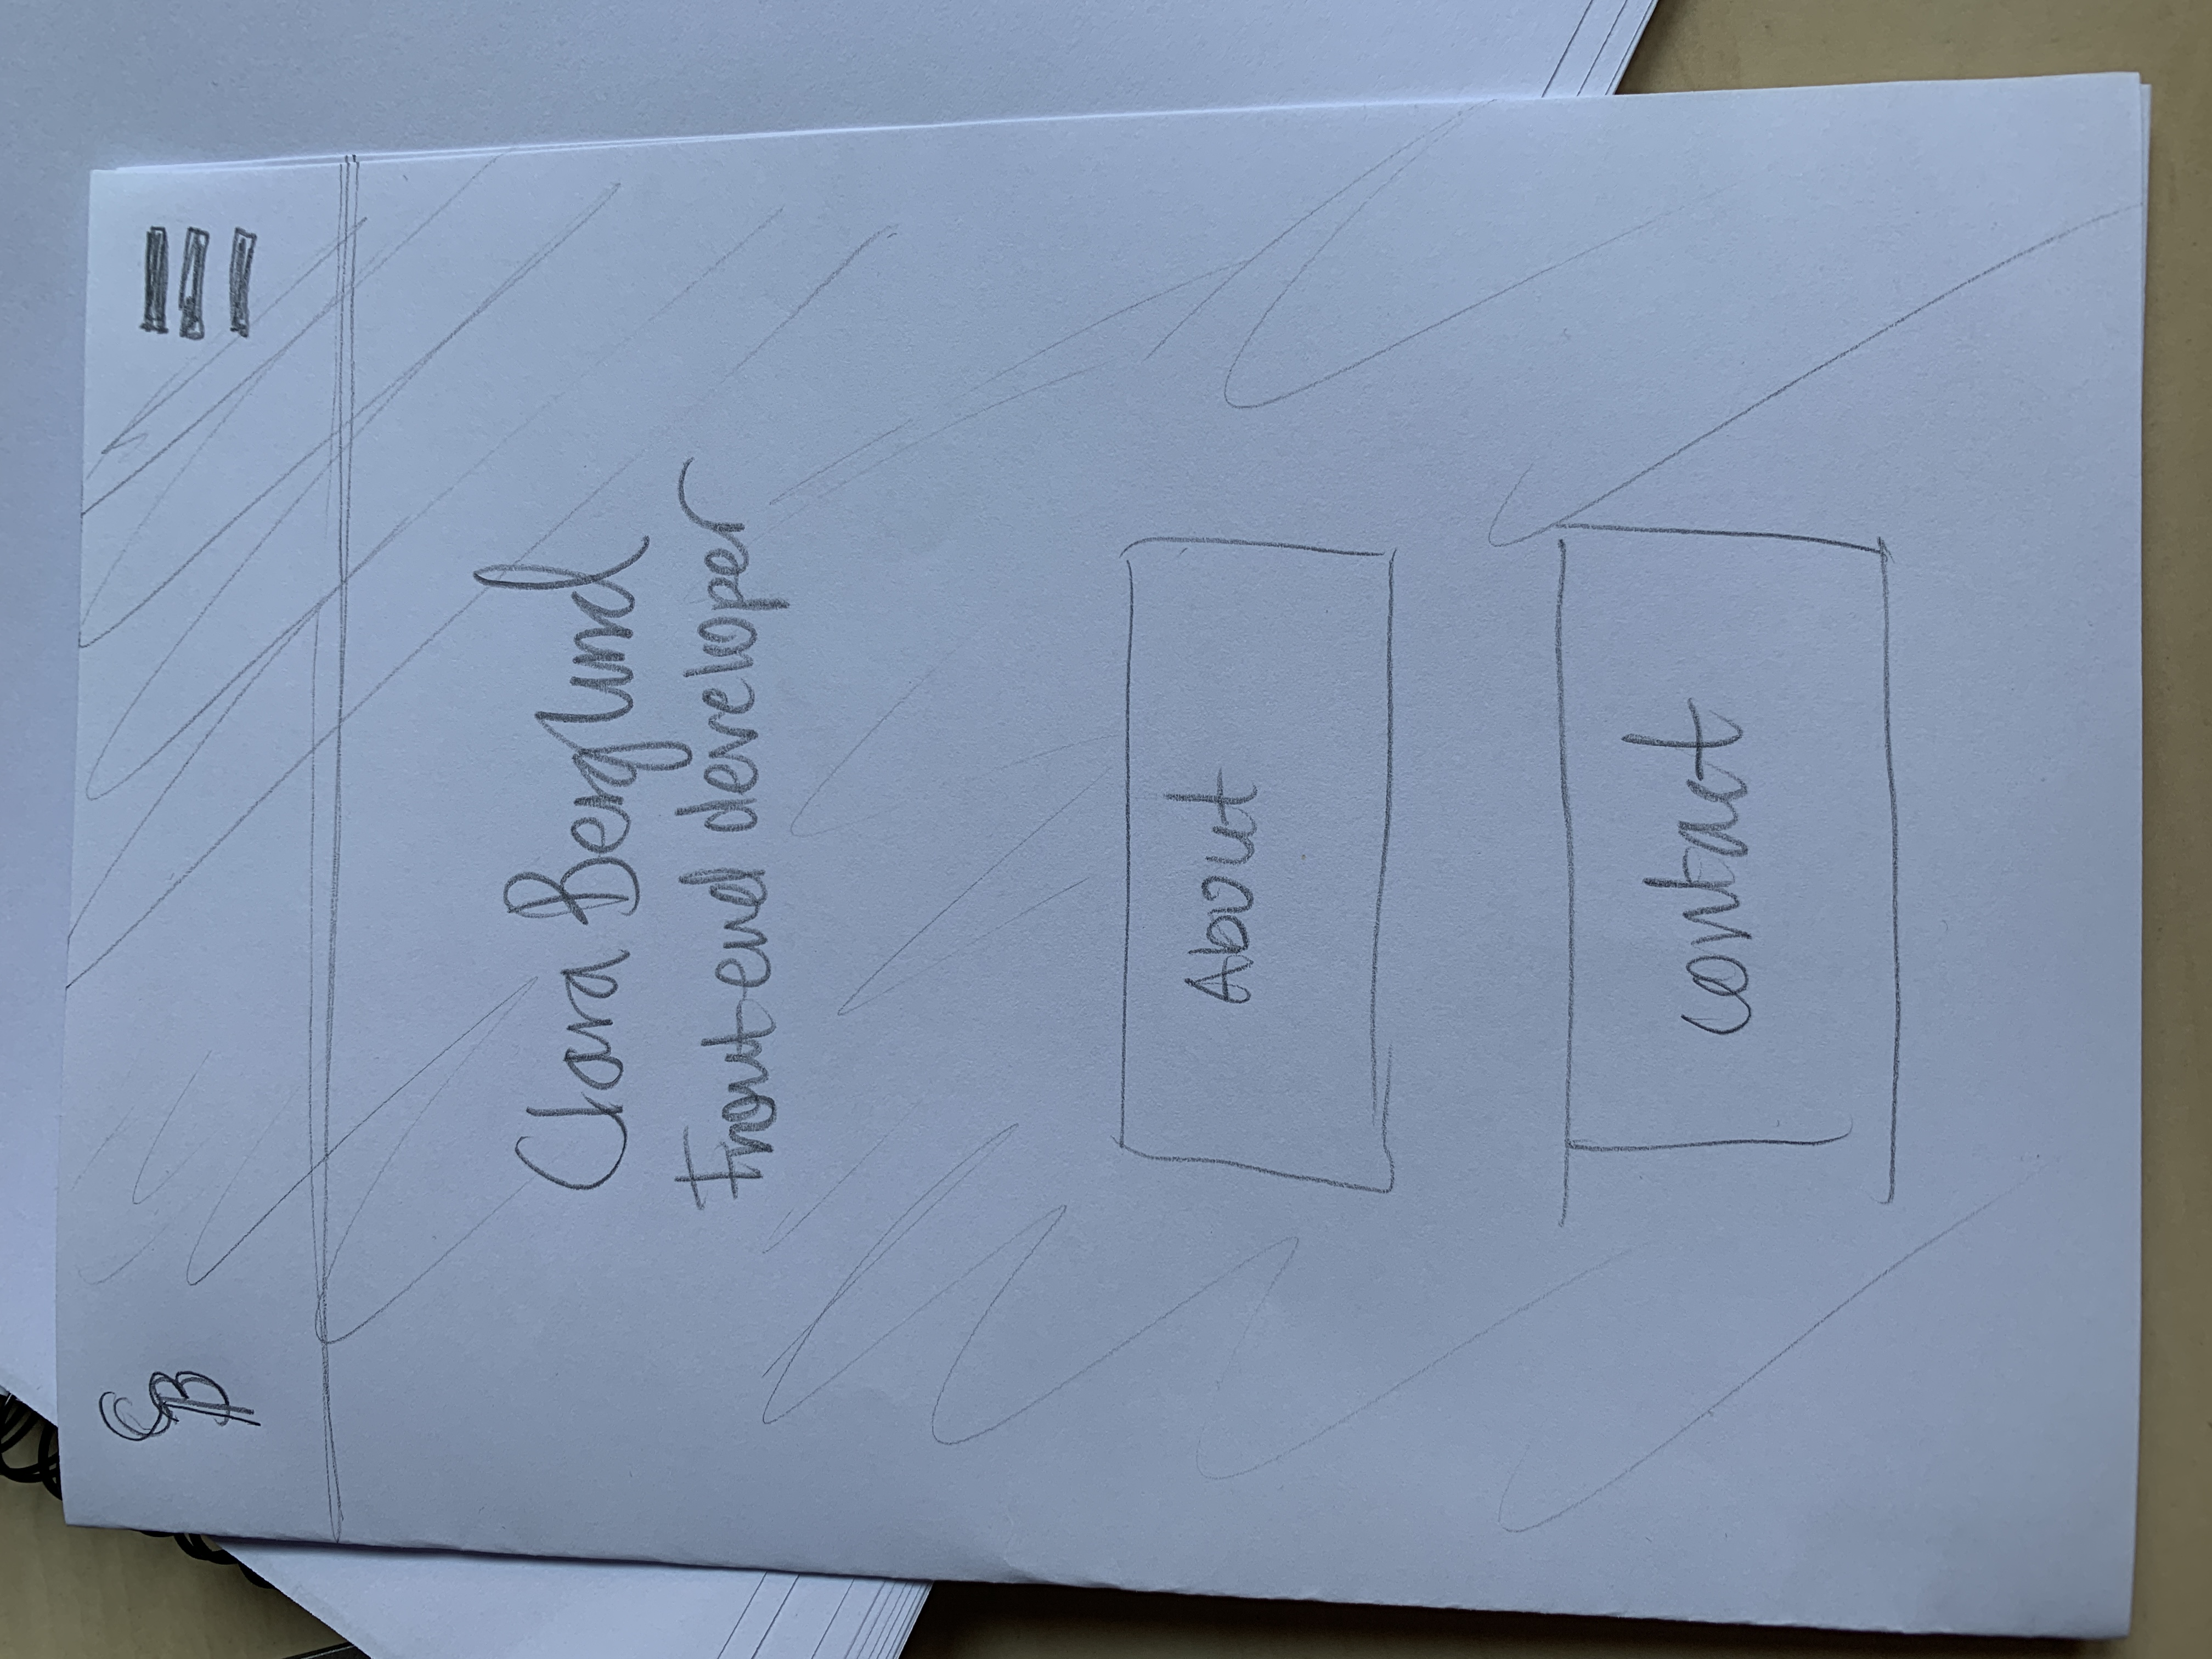 CB
Clara Berglund
Frontend developer
About
contact